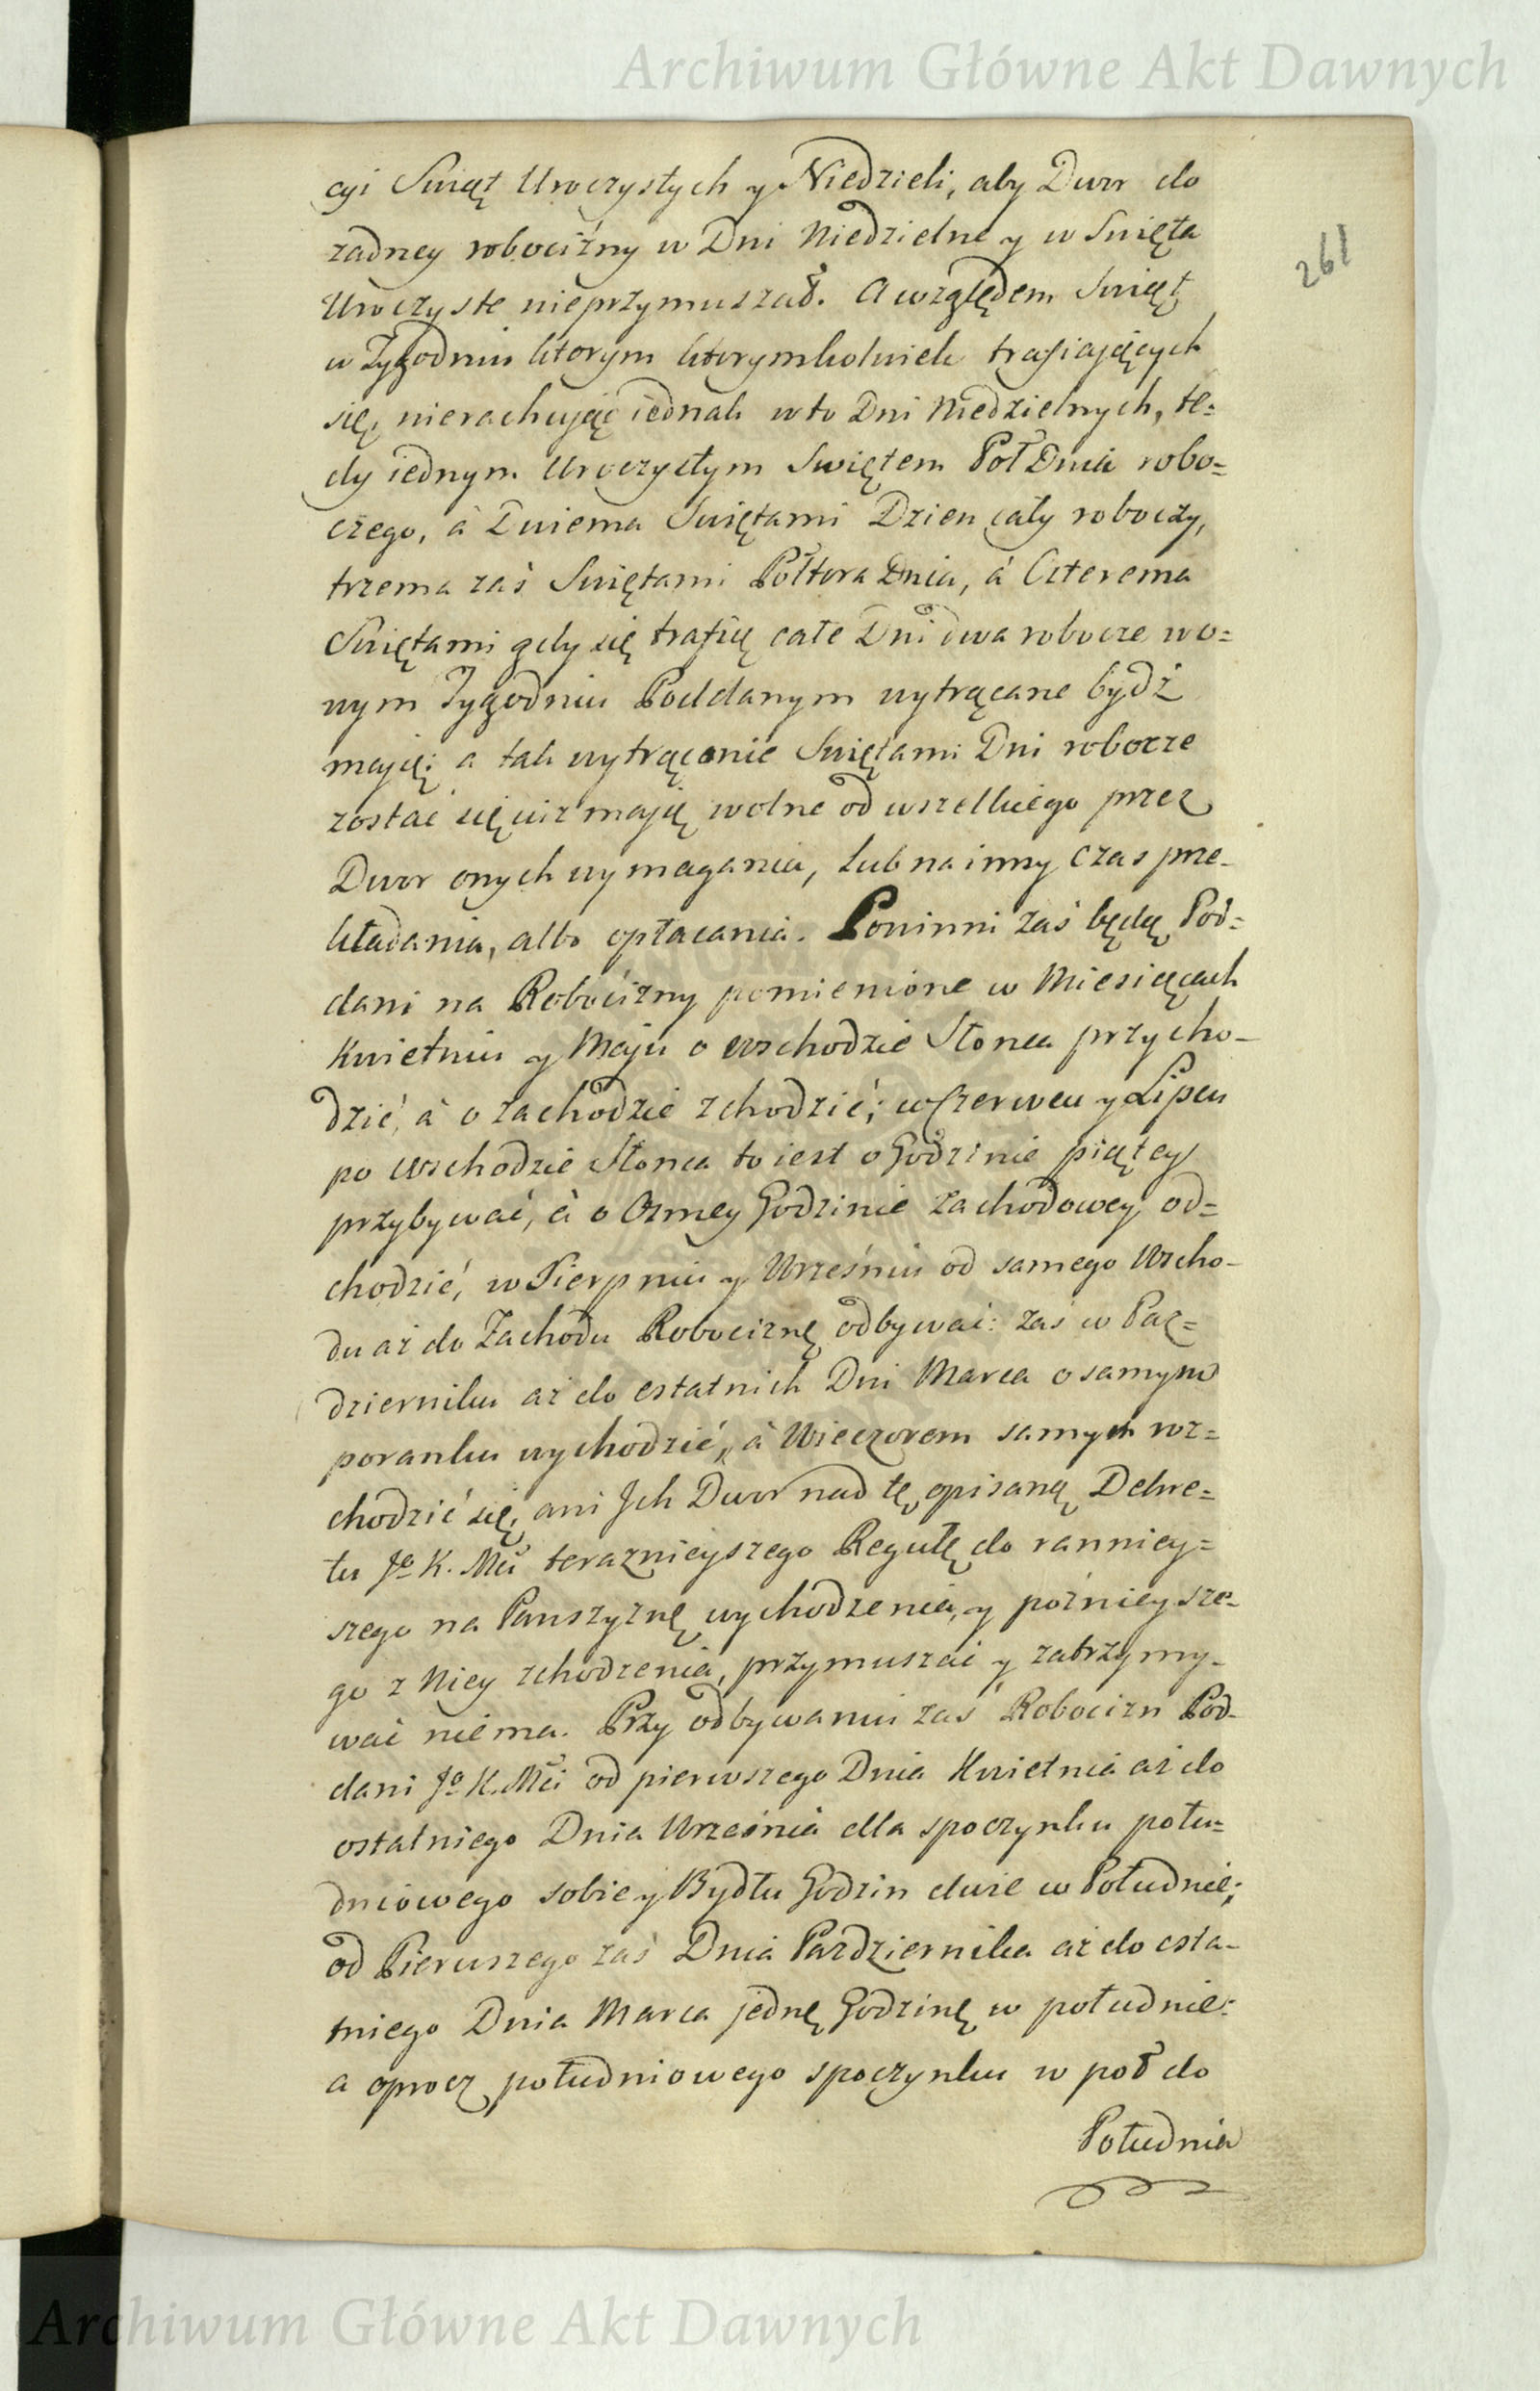 Archiwum Główne Akt Dawnych
261
cyi Swiąt Uroczystych y Niedzieli, aby Dwor do
zadney robocizny w Dni Niedzielne y w Swięta
Uroczyste nieprzymuszał. A względem Swiąt
w Tygodniu ktorym ktorymkolwiek trafiaiących
się, nierachuiąc iednak w to Dni Niedzielnych, te=
dy iednym Uroczystym Swiętem Poł Dnia robo=
czego, à Dwiema Swiętami Dzien cały roboczy,
trzema zaś Swiętami Połtora Dnia, à Czterema
Swiętami gdy się trafią całe Dni dwa robocze w o=
nym Tygodniu Poddanym wytrącane bydź
maią; a tak wytrącone Swiętami Dni robocze
zostać się iuż maią wolne od wszelkiego przez
Dwor onych wymagania, lub na inny Czas prze-
kładania, albo opłacania. Powinni zaś będą Pod=
dani na Robocizny pomienione w Miesiącach
Kwietniu y Maju o wschodzie Słonca przycho-
dzić, à o zachodzie zchodzić; w Czerwcu y Lipcu
po wschodzie Słonca to iest o Godzinie piątey
przybywać, à o Osmey Godzinie zachodowey od=
chodzić, w Sierpniu y Wrześniu od samego Wscho-
du aż do Zachodu Robociznę odbywać: zaś w Paź=
dzierniku aż do ostatnich Dni Marca o samym
poranku wychodzić, à Wieczorem samym roz=
chodzić się, ani Jch Dwor nad tę opisaną Dekre=
tu Jº K. Mći teraznieyszego Regułę do ranniey=
szego na Panszyznę wychodzenia, y poźnieysze-
go z Niey zchodzenia, przymuszać y zatrzymy-
wać niema. Przy odbywaniu zaś Robocizn Pod-
dani Jº K. Mći od pierwszego Dnia Kwietnia aż do
ostatniego Dnia Września dla spoczynku połu=
dniowego sobie y Bydłu Godzin dwie w Południe;
od Pierwszego zaś Dnia Pazdziernika aż do osta-
tniego Dnia Marca jednę Godzinę w południe:
a oprocz południowego spoczynku w poł do
Południa
Archiwum Główne Akt Dawnych